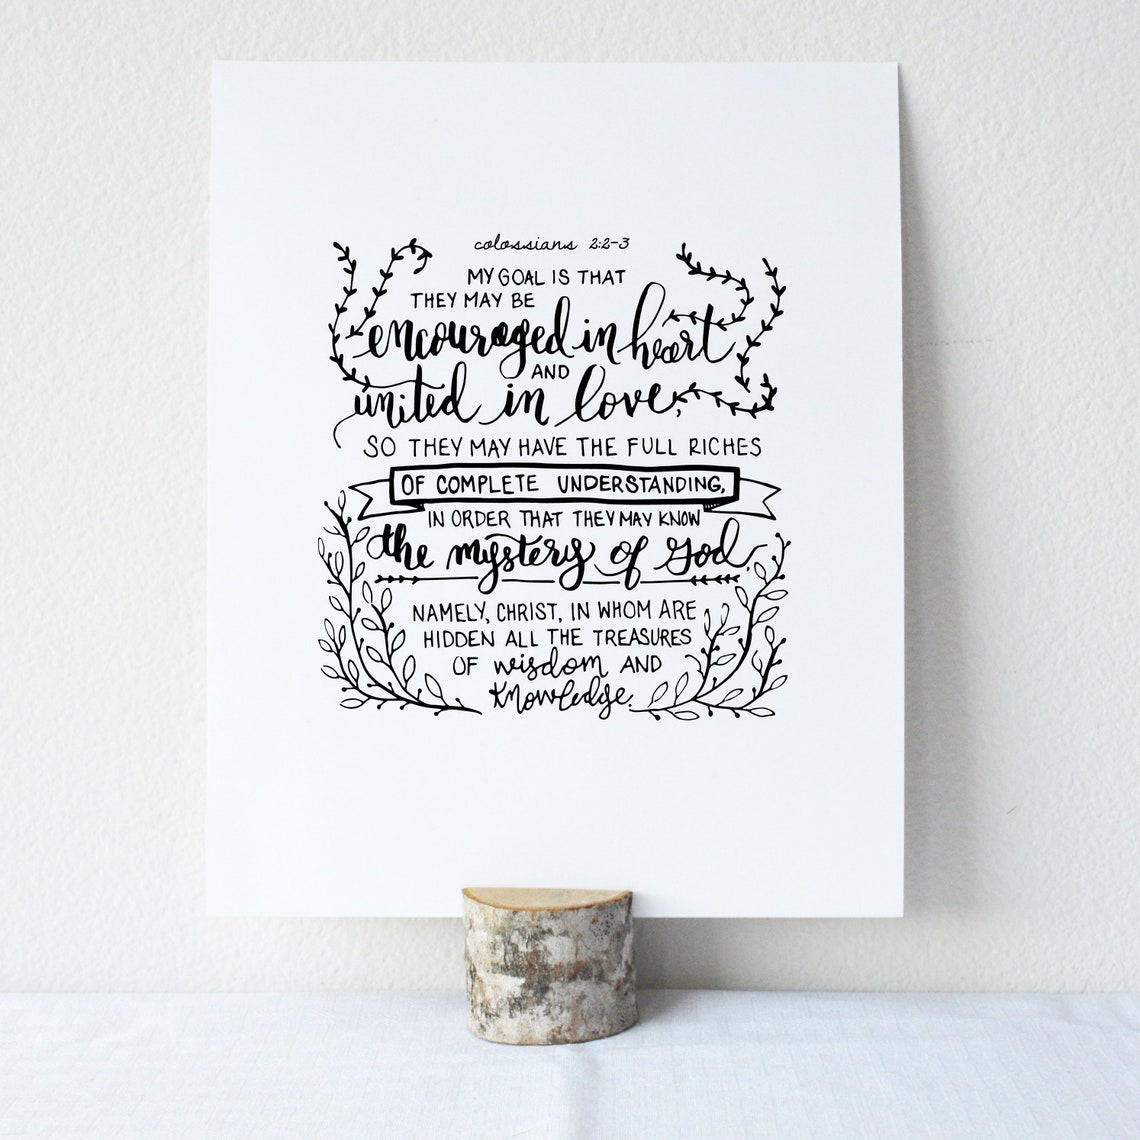 colossians 2:2-3
MY GOAL IS THAT
THEY MAY BE
encouraged in heart
AND
united in love,
SO THEY MAY HAVE THE FULL RICHES
OF COMPLETE UNDERSTANDING,
IN ORDER THAT THEY MAY KNOW
the mystery of God,
NAMELY, CHRIST, IN WHOM ARE
HIDDEN ALL THE TREASURES
OF wisdom AND
knowledge.